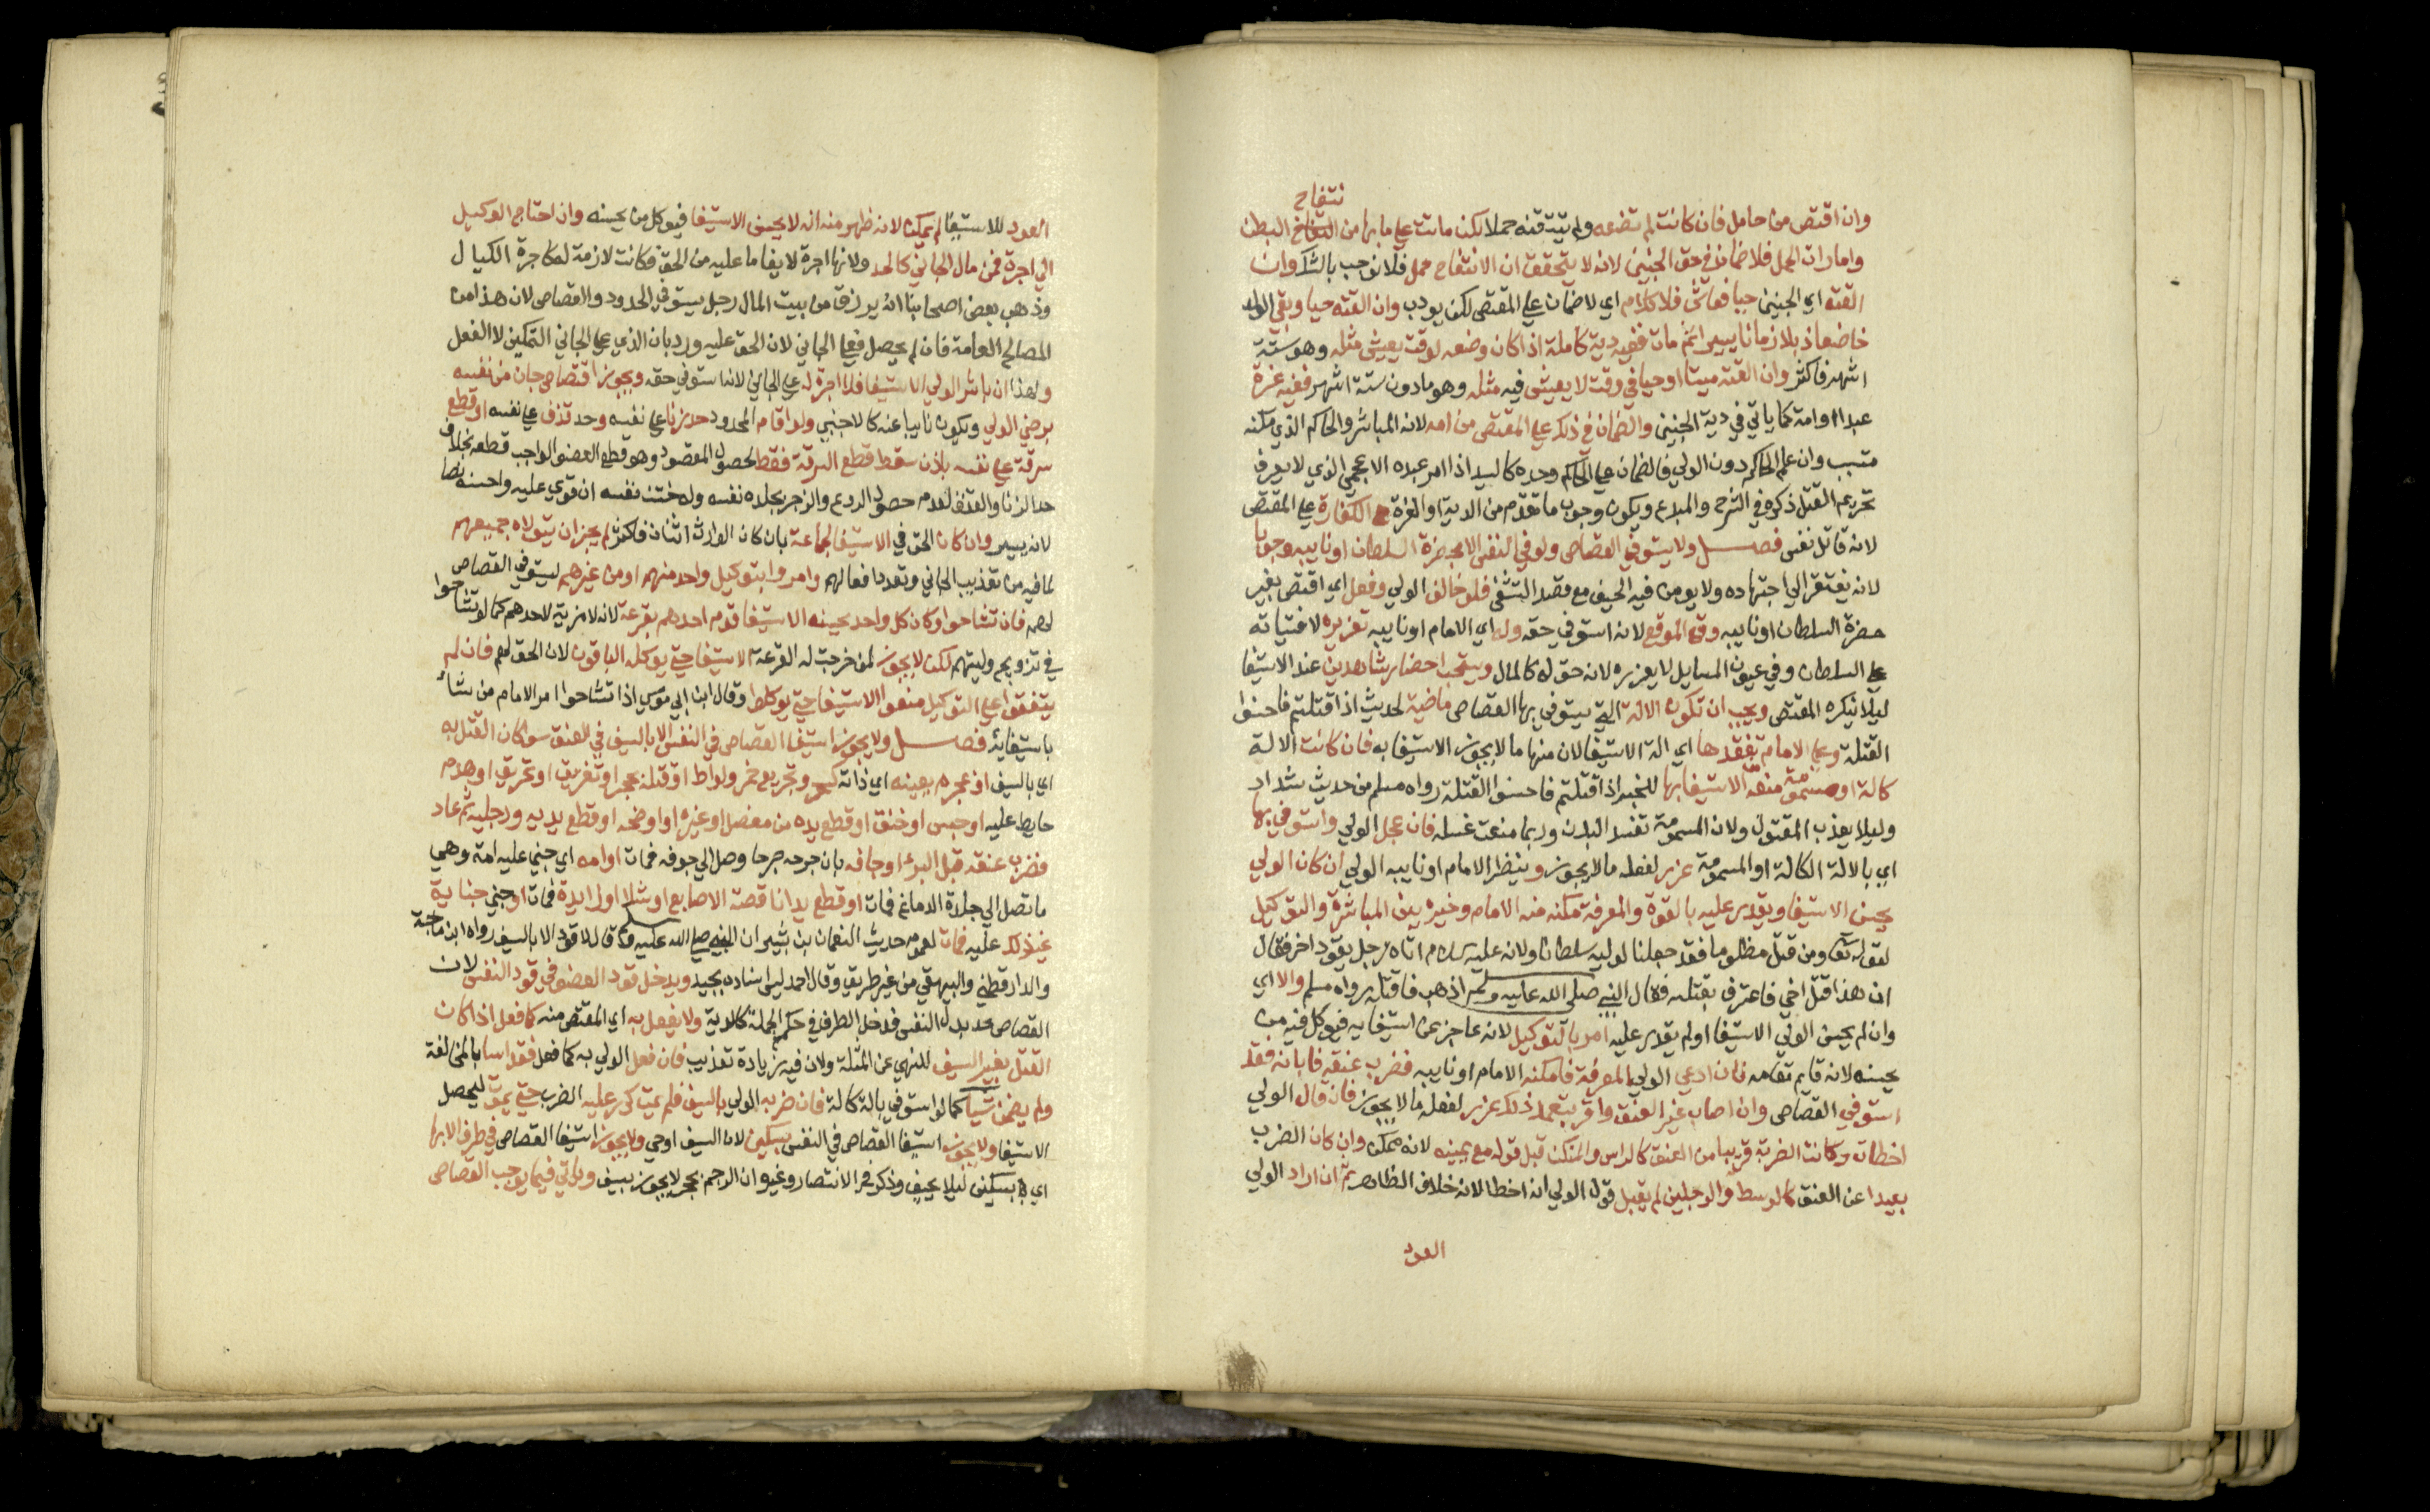 نتفاخ
وان اقتص من حامل فان كانت لم تضعه ولم يتيقنه حملا لكن ماتت علي ما بها من البطن
وامارات الحمل فلا ضمان في حق الجنين لانه لا يتحقق ان الانتفاخ حمل فلا نوجب بالشك وان
القته اي الجنين حيا فعاش فلا كلام اي لا ضمان علي المقتص لكن يودب وان القته حيا وبقي الولد
خاضعا ذبلا زمانا يسيرا ثم مات ففيه دية كاملة اذا كان وضعه لوقت يعيش مثله وهو ستة
اشهر فاكثر وان القته ميتا او حيا في وقت لا يعيش فيه مثله وهو ما دون ستة اشهر ففيه غرة
عبد او امة كما ياتي في دية الجنين والضمان في ذلك علي المقتص من امه لانه المباشر والحاكم الذي مكنه
متسبب وان علم الحاكم دون الولي فالضمان علي الحاكم وحده كالسيد اذا امر عبده الاعجمي الذي لا يعرف
تحريم القتل ذكره في الشرح والمبدع ويكون وجوب ما تقدم من الدية او الغرة مع الكفارة علي المقتص
لانه قاتل نفس فصل ولا يستوفي القصاص ولو في النفس الا بحضرة السلطان او نايبه وجوبا
لانه يفتقر الي اجتهاده ولا يومن فيه الحيف مع قصد التشفي فلو خالف الولي وفعل اي اقتص بغير
حضرة السلطان او نايبه وقع الموقع لانه استوفي حقه وله اي الامام او نايبه تعزيره لافتياته
علي السلطان وفي عيون المسايل لا يعزره لانه حق له كالمال ويستحب احضار شاهدين عند الاستيفا
ليلا ينكره المقتص ويجب ان تكون الالة التي يستوفي بها القصاص ماضية لحديث اذا قتلتم فاحسنوا
القتلة وعلي الامام تفقدها اي الة الاستيفا لان منها ما لا يجوز الاستيفا به فان كانت الالة
كالة او مسمومة منعه الاستيفا بها للخبر اذا قتلتم فاحسنوا القتلة رواه مسلم من حديث شداد
وليلا يعذب المقتول ولان المسمومة تفسد البدن وربما منعت غسله فان عجل الولي واستوفي بها
اي بالالة الكالة او المسمومة عزر لفعله ما لا يجوز وينظر الامام او نايبه الولي ان كان الولي
يحسن الاستيفا ويقدر عليه بالقوة والمعرفة مكنه منه الامام وخيره بين المباشرة والتوكيل
لقوله تعا ومن قتل مظلوما فقد جعلنا لوليه سلطانا ولانه عليه السلام اتاه رجل يقود اخر فقال
ان هذا قتل اخي فاعترف بقتله فقال النبي صلي الله عليه وسلم اذهب فاقتله رواه مسلم والا اي
وان لم يحسن الولي الاستيفا او لم يقدر عليه امر بالتوكيل لانه عاجز عن استيفايه فيوكل فيه من
يحسنه لانه قايم مقامه فان ادعي الولي المعرفة فامكنه الامام او نايبه فضرب عنقه فابانه فقد
استوفي القصاص وان اصاب غير العنق واقر بتعمد ذلك عزر لفعله ما لا يجوز فان قال الولي
اخطات وكانت الضربة قريبا من العنق كالراس والمنكب قبل قوله مع يمينه لانه ممكن وان كان الضرب
بعيدا عن العنق كالوسط والرجلين لم يقبل قول الولي انه اخطا لانه خلاف الظاهر ثم ان اراد الولي
العود
العود للاستيفا لم يمكن لانه ظهر منه انه لا يحسن الاستيفا فيوكل من يحسنه وان احتاج الوكيل
الي اجرة فمن مال الجاني كالحد ولانها اجرة لايفا ما عليه من الحق فكانت لازمة له كاجرة الكيال
وذهب بعض اصحابنا انه يرزق من بيت المال رجل يستوفي الحدود والقصاص لان هذا من
المصالح العامة فان لم يحصل فعلي الجاني لان الحق عليه ورد بان الذي علي الجاني التمكين لا الفعل
ولهذا ان باشر الولي الاستيفا فلا اجرة له علي الجاني لانه استوفي حقه ويجوز اقتصاص جان من نفسه
برضي الولي ويكون نايبا عنه كالاجنبي ولو اقام المحدود حد زنا علي نفسه وحد قذف علي نفسه او قطع
سرقة علي نفسه باذن سقط قطع السرقة فقط لحصول المقصود وهو قطع العضو الواجب قطعه بخلاف
حد الزنا والقذف لعدم حصول الردع والزجر بجلده نفسه وله ختن نفسه ان قوي عليه واحسنه نصا
لانه يسير وان كان الحق في الاستيفا لجماعة بان كان الوارث اثنان فاكثر لم يجز ان يتولاه جميعهم
لما فيه من تعذيب الجاني وتعدد افعالهم وامروا بتوكيل واحد منهم او من غيرهم ليستوفي القصاص
لهم فان تشاحوا وكان كل واحد يحسنه الاستيفا قدم احدهم بقرعة لانه لا مزية لاحدهم كما لو تشاحوا
في تزويج وليتهم لكن لا يجوز لمن خرجت له القرعة الاستيفا حتي يوكله الباقون لان الحق لهم فان لم
يتفقوا علي التوكيل منعوا الاستيفا حتي يوكلوا وقال ابن ابي موسي اذا تشاحوا امر الامام من شاء
باستيفايه فصل ولا يجوز استيفا القصاص في النفس الا بالسيف في العنق سوا كان القتل به
اي بالسيف او بمحرم بعينه اي ذاته كسحر وتجريع خمر ولواط او قتله بحجر او تغريق او تحريق او هدم
حايط عليه او حبس او خنق او قطع يده من مفصل او غيره او اوضحه او قطع يديه ورجليه ثم عاد
فضرب عنقه قبل البرء او جافه بان جرحه جرحا وصل الي جوفه فمات او امه اي جني عليه امة وهي
ما تصل الي جلدة الدماغ فمات او قطع يدا ناقصة الاصابع او شلا او زايدة فمات او جني جناية
غير ذلك عليه فمات لعموم حديث النعمان بن بشير ان النبي صلي الله عليه وسلم قال لا قود الا بالسيف رواه ابن ماجة
والدارقطني والبيهقي من غير طريق وقال احمد ليس اسناده بجيد ويدخل قود العضو في قود النفس لان
القصاص احد بدلي النفس فدخل الطرف في حكم الجملة كالدية ولا يفعل به اي المقتص منه كما فعل اذا كان
القتل بغير السيف للنهي عن المثلة ولان فيه زيادة تعذيب فان فعل الولي به كما فعل فقد اسا بالمخالفة
ولم يضمن شيا كما لو استوفي بالة كالة فان ضربه الولي بالسيف فلم يمت كرر عليه الضرب حتي يموت ليحصل
الاستيفا ولا يجوز استيفا القصاص في النفس بسكين لان السيف اوحي ولا يجوز استيفا القصاص في طرف الا بها
اي بسكين ليلا يحيف وذكر في الانتصار وغيره ان الرجم بحجر لا يجوز بسيف وياتي فيما يوجب القصاص